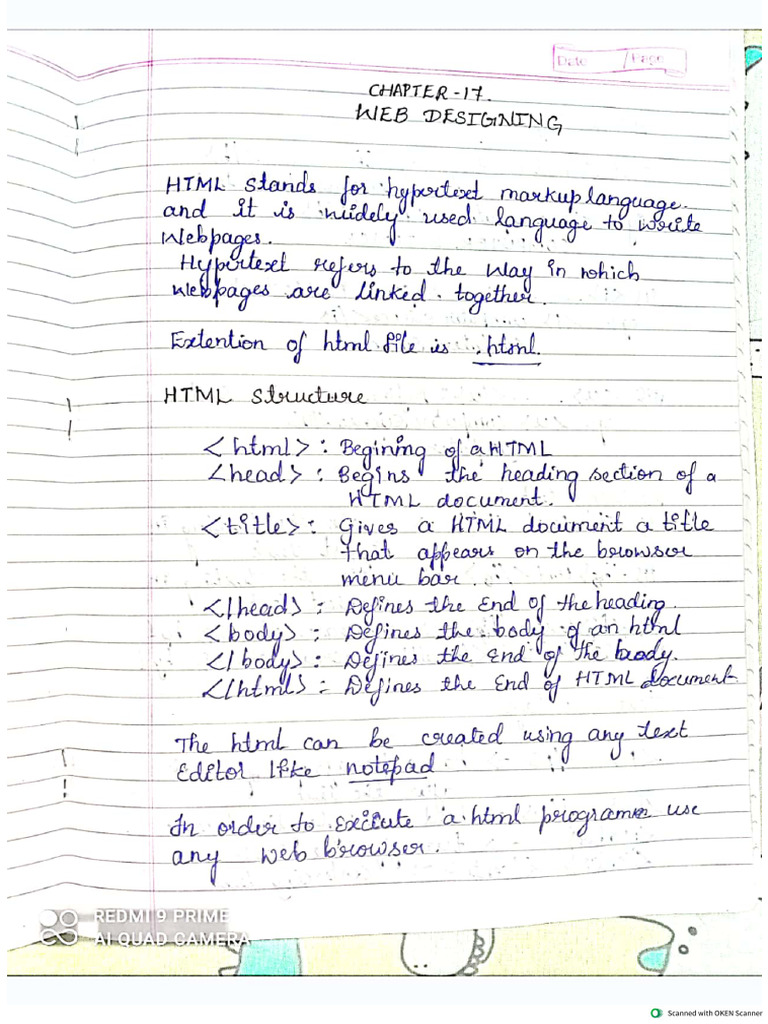 Date / Page
CHAPTER-17.
WEB DESIGNING
HTML stands for hypertext markup language.
and it is widely used language to write
Webpages.
Hypertext refers to the way in which
Webpages are linked together.
Extention of html file is .html.
HTML structure
<html> : Begining of a HTML
<head> : Begins the heading section of a
HTML document.
<title> : Gives a HTML document a title
that appears on the browser
menu bar.
</head> : Defines the End of the heading.
<body> : Defines the body of an html
</body> : Defines the End of the body.
</html> : Defines the End of HTML document
The html can be created using any text
Editor like notepad.
In order to execute a html programm use
any web browser.
REDMI 9 PRIME
AI QUAD CAMERA
Scanned with OKEN Scanner